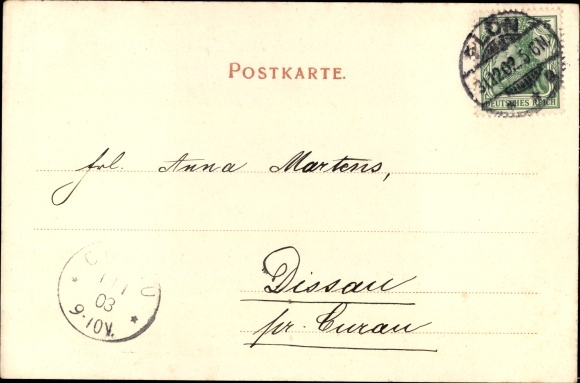 PLÖN
31.12.02.5-6N.
DEUTSCHES REICH
POSTKARTE.
frl. Anna Martens,
Dissau
pr. Curau
CURAU
1 1
03
9-10V.